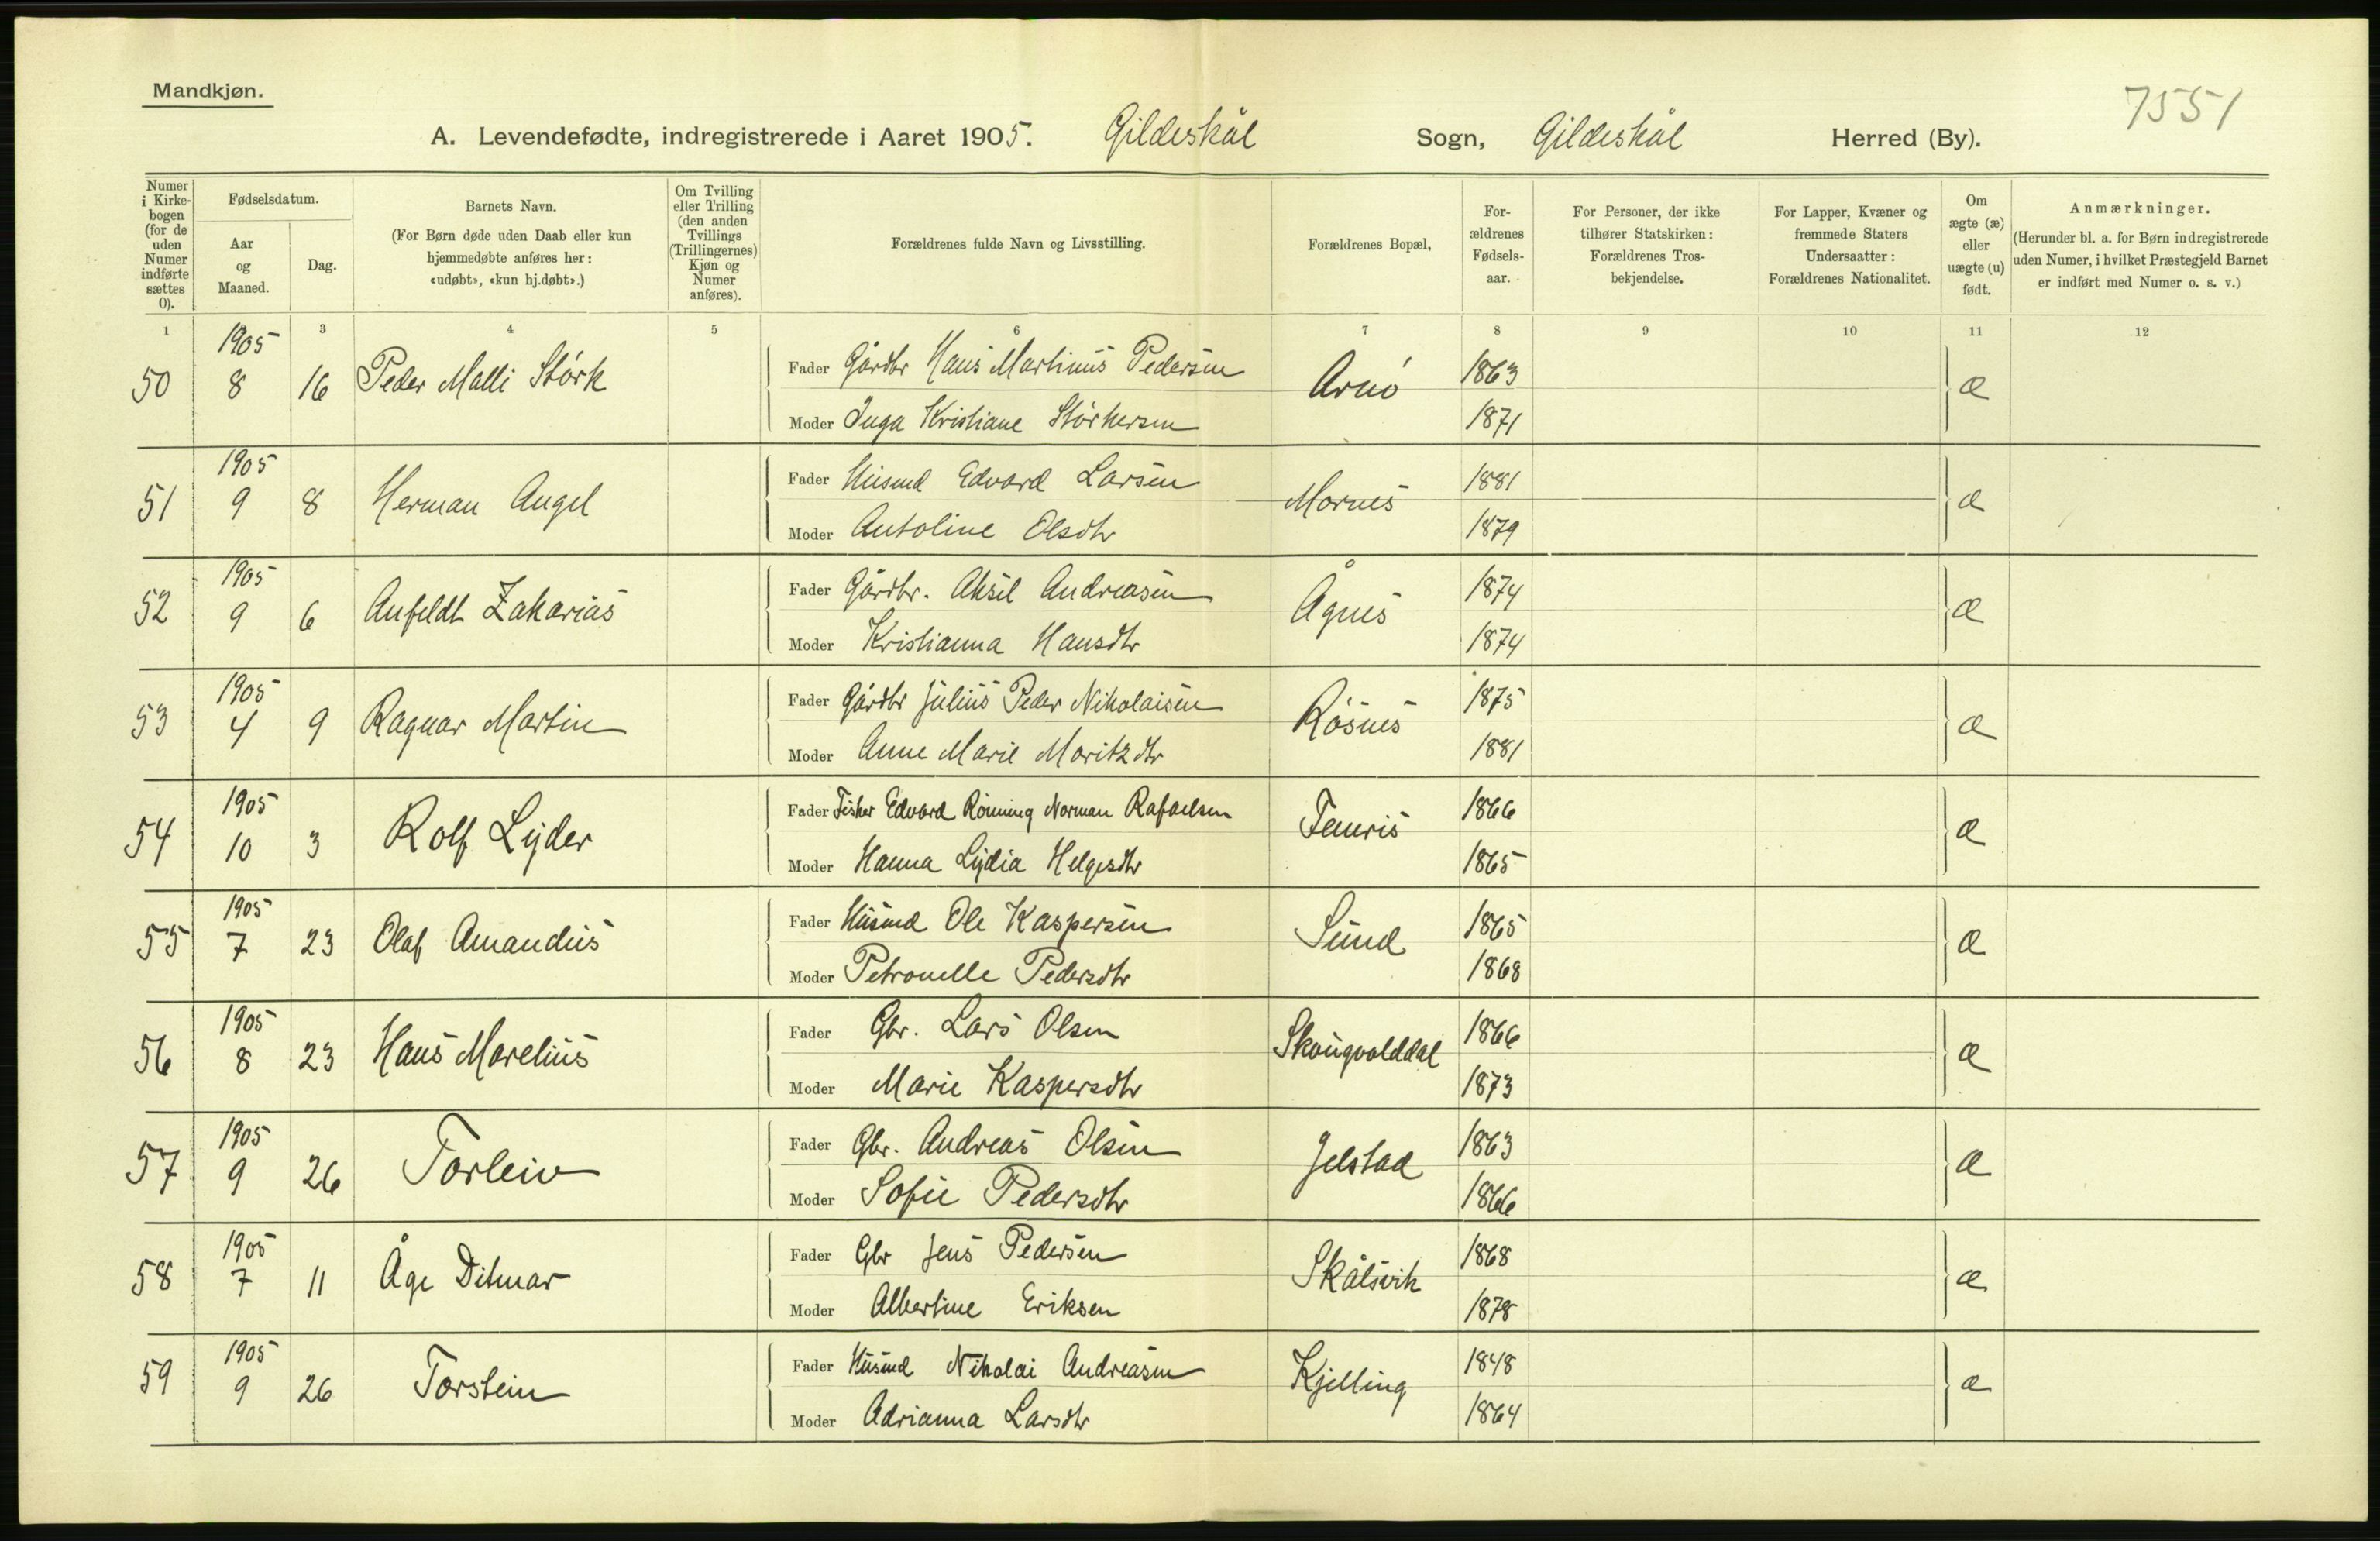 Mandkjøn.
7551
A. Levendefødte, indregistrerede i Aaret 1905. Gildeskål Sogn, Gildeskål Herred (By).
Numer i Kirkebogen (for de uden Numer indførte sættes 0).
Fødselsdatum.
Aar og Maaned.
Dag.
Barnets Navn.
(For Børn døde uden Daab eller kun hjemmedøbte anføres her: «udøbt», «kun hj.døbt».)
Om Tvilling eller Trilling (den anden Tvillings (Trillingernes) Kjøn og Numer anføres).
Forældrenes fulde Navn og Livsstilling.
Forældrenes Bopæl,
Forældrenes Fødselsaar.
For Personer, der ikke tilhører Statskirken: Forældrenes Trosbekjendelse.
For Lapper, Kvæner og fremmede Staters Undersaatter: Forældrenes Nationalitet.
Om ægte (æ) eller uægte (u) født.
Anmærkninger.
(Herunder bl. a. for Børn indregistrerede uden Numer, i hvilket Præstegjeld Barnet er indført med Numer o. s. v.)
1 3 4 5 6 7 8 9 10 11 12
50 1905 8 16 Peder Malli Störk Fader Gårdbr Hans Martinus Pedersen Arnö 1863 æ
Moder Inga Kristiane Störkersen 1871
51 1905 9 8 Herman Angel Fader Husmd Edvard Larsen Mornes 1881 æ
Moder Antoline Olsdtr 1879
52 1905 9 6 Anfeldt Zakarias Fader Gårdbr. Aksel Andreasen Ågnes 1874 æ
Moder Kristianna Hansdtr 1874
53 1905 4 9 Ragnar Martin Fader Gårdbr Julius Peder Nikolaisen Rösnes 1875 æ
Moder Anne Marie Moritzdtr 1881
54 1905 10 3 Rolf Lyder Fader Fisker Edvard Rönning Norman Rafaelsen Fleuris 1866 æ
Moder Hanna Lydia Helgesdtr 1865
55 1905 7 23 Olaf Amandus Fader Husmd Ole Kaspersen Sund 1865 æ
Moder Petronelle Pedersdtr 1868
56 1905 8 23 Hans Marelius Fader Gbr. Lars Olsen Skaugvolddal 1866 æ
Moder Marie Kaspersdtr 1873
57 1905 9 26 Torleiv Fader Gbr. Andreas Olsen Jelstad 1863 æ
Moder Sofie Pedersdtr 1866
58 1905 7 11 Åge Ditmar Fader Gbr Jens Pedersen Skålsvik 1868 æ
Moder Albertine Eriksen 1878
59 1905 9 26 Torstein Fader Husmd Nikolai Andreasen Kjelling 1848 æ
Moder Adrianna Larsdtr 1864